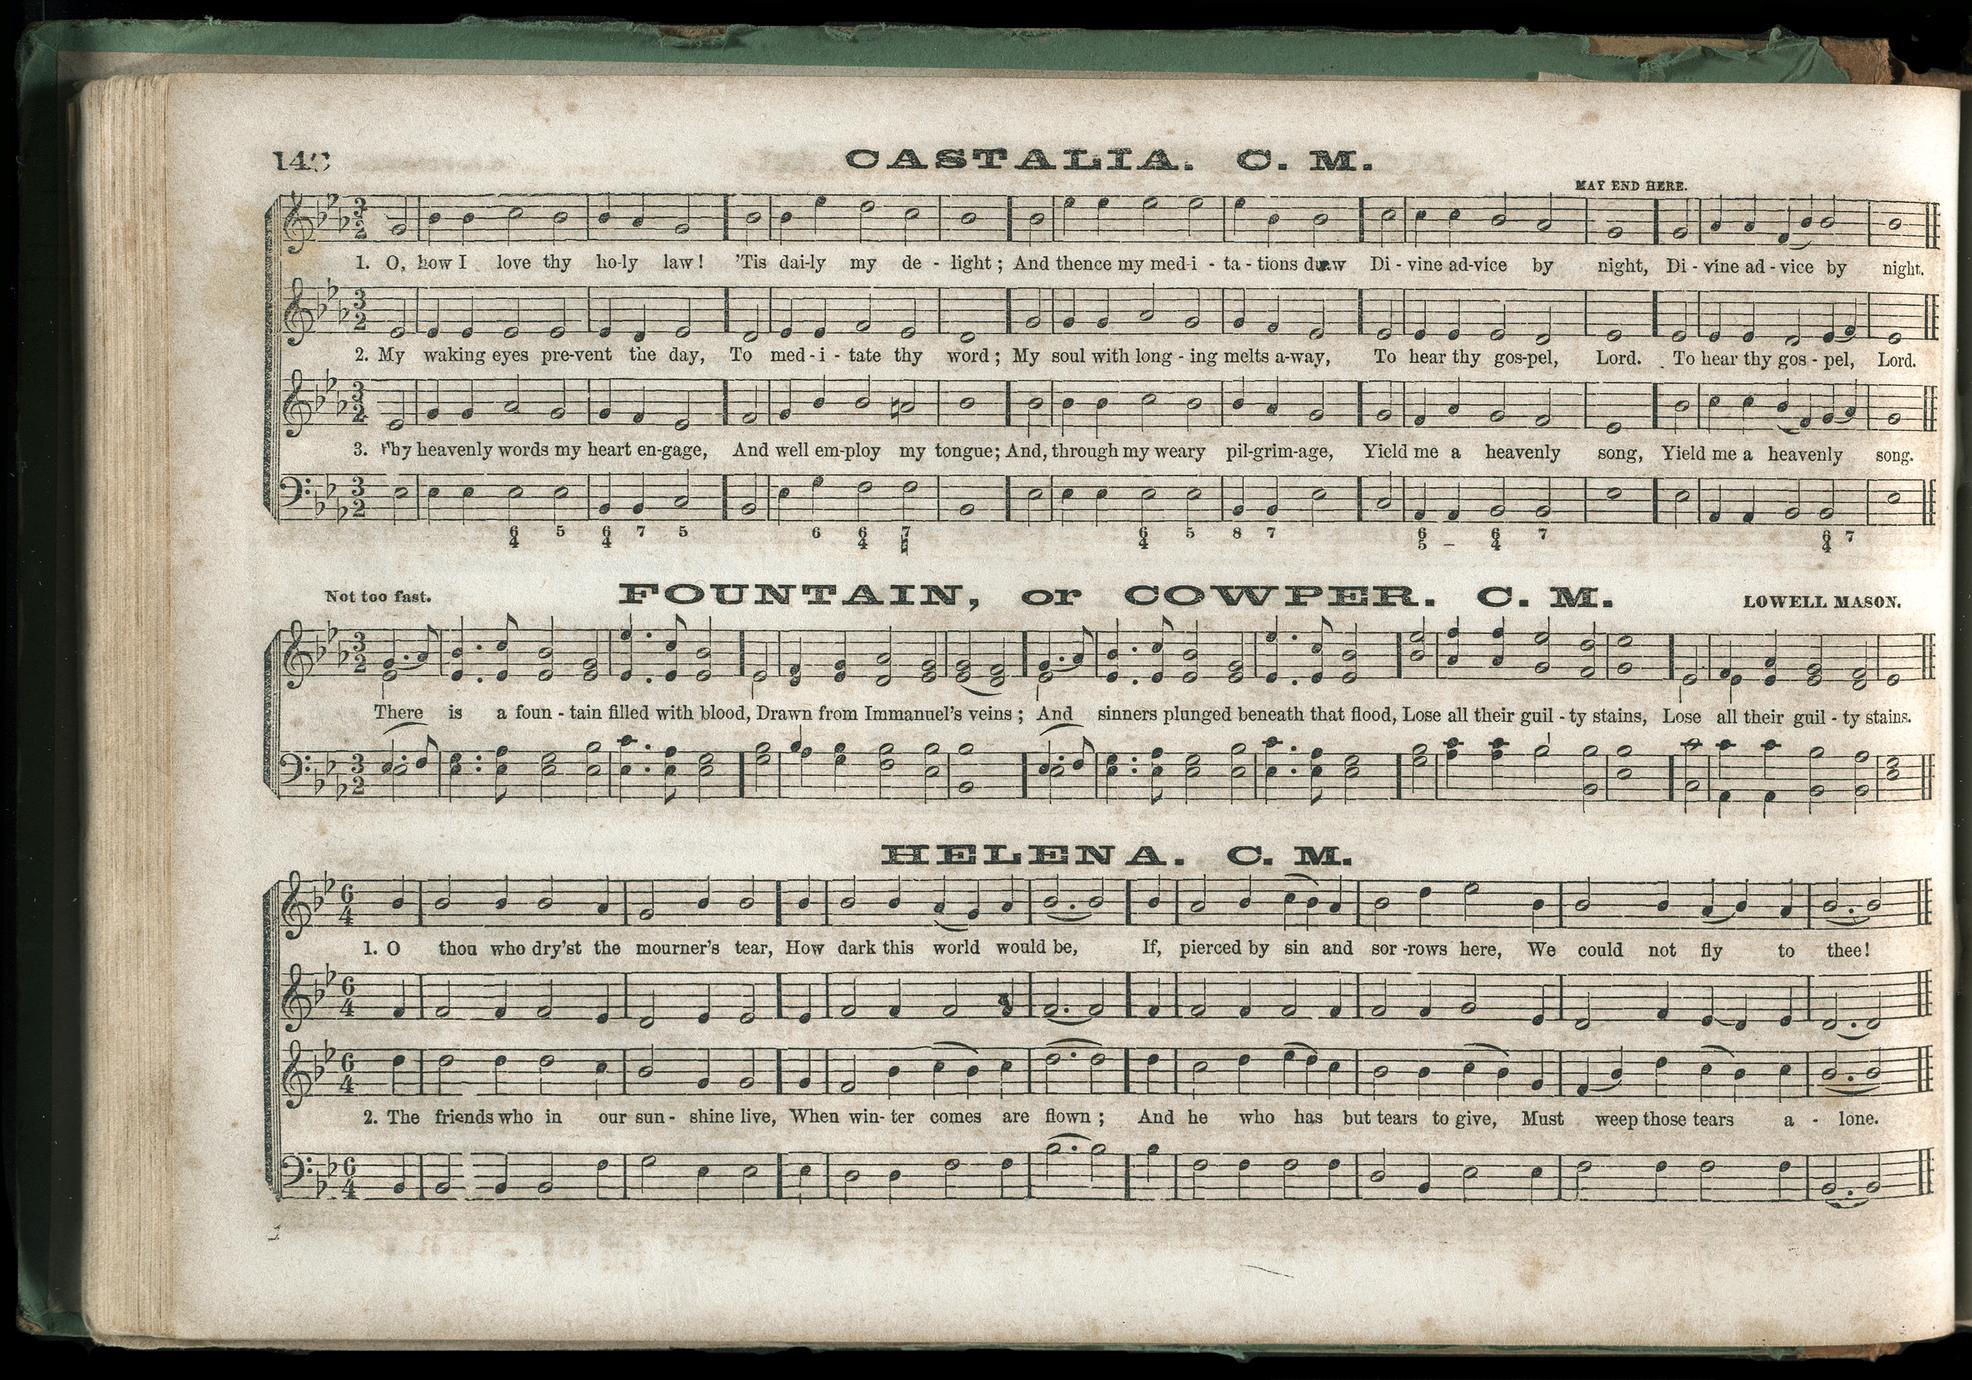 CASTALIA. C. M.
MAY END HERE.
1. O, how I love thy ho-ly law! 'Tis dai-ly my de - light; And thence my med-i - ta - tions draw Di - vine ad-vice by night, Di - vine ad - vice by night.
2. My waking eyes pre-vent the day, To med - i - tate thy word; My soul with long - ing melts a-way, To hear thy gos-pel, Lord. To hear thy gos - pel, Lord.
3. Thy heavenly words my heart en-gage, And well em-ploy my tongue; And, through my weary pil-grim-age, Yield me a heavenly song, Yield me a heavenly song.
6 4 5 6 4 7 5 6 6 4 7 6 4 5 8 7 6 5 – 6 4 7 6 4 7
Not too fast. FOUNTAIN, or COWPER. C. M. LOWELL MASON.
There is a foun - tain filled with blood, Drawn from Immanuel's veins; And sinners plunged beneath that flood, Lose all their guil - ty stains, Lose all their guil - ty stains.
HELENA. C. M.
1. O thou who dry'st the mourner's tear, How dark this world would be, If, pierced by sin and sor -rows here, We could not fly to thee!
2. The friends who in our sun - shine live, When win- ter comes are flown; And he who has but tears to give, Must weep those tears a - lone.